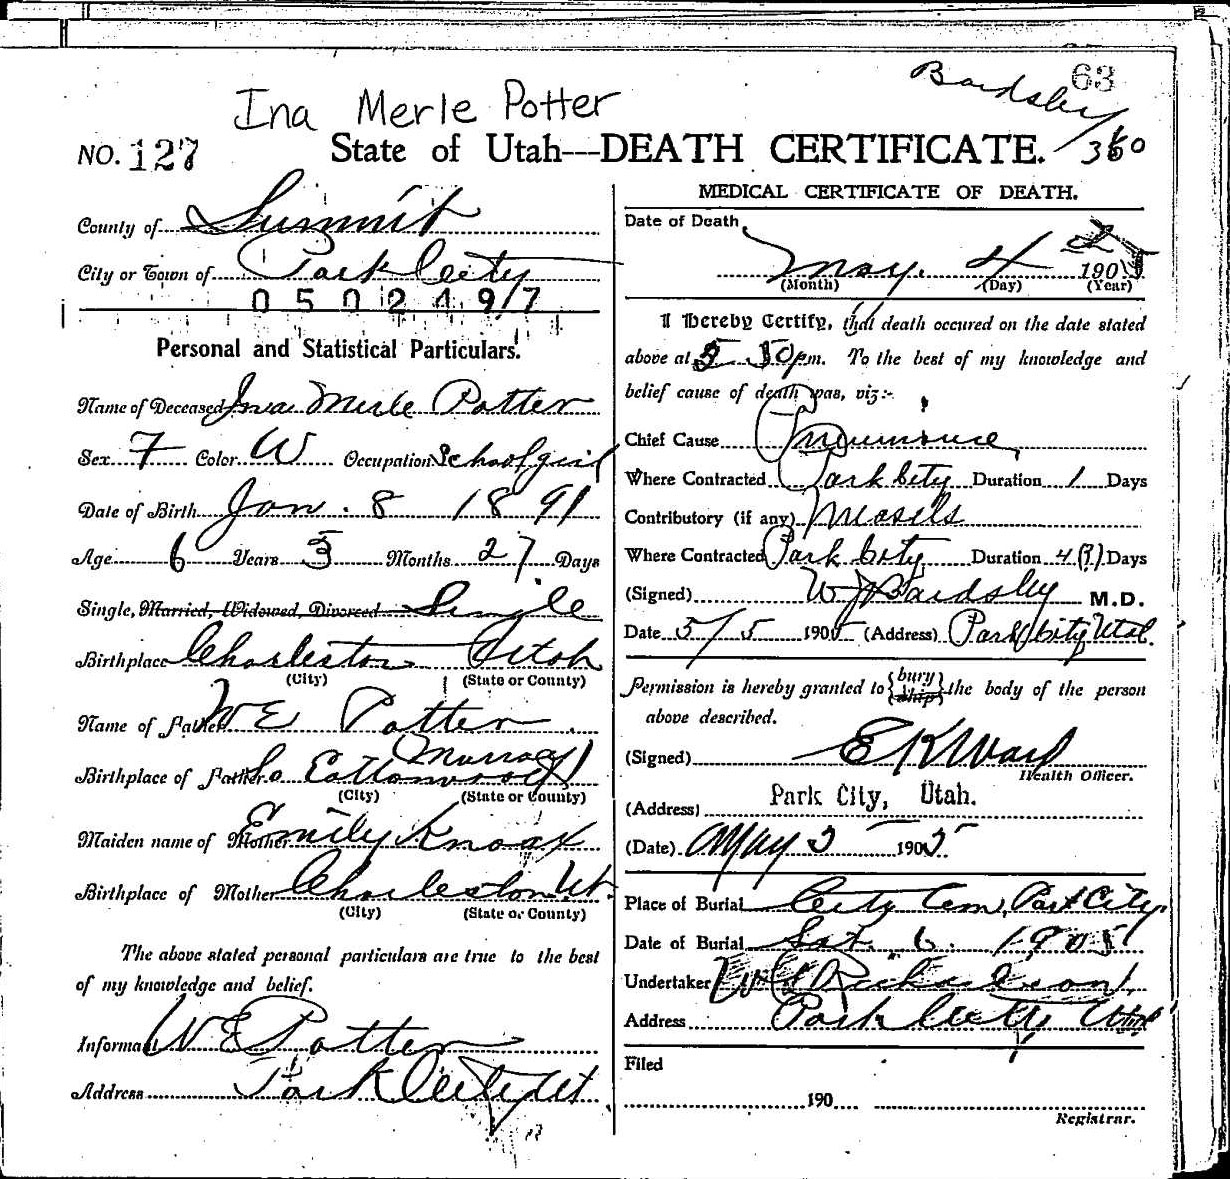 63
Bardsley
360
Ina Merle Potter
NO. 127 State of Utah---DEATH CERTIFICATE.
County of Summit
City or Town of Park City
0 5 0 2 4 9/7
Personal and Statistical Particulars.
Name of Deceased Ina Merle Potter
Sex F Color W Occupation Schoolgirl
Date of Birth Jan. 8 1891
Age 6 Years 3 Months 27 Days
Single, Married, Widowed, Divorced Single
Birthplace Charleston Utah
(City) (State or County)
Name of Father W E Potter
Murray
Birthplace of Father So Cottonwood
(City) (State or County)
Maiden name of Mother Emily Knoax
Birthplace of Mother Charleston Ut
(City) (State or County)
The above stated personal particulars are true to the best
of my knowledge and belief.
Informant W E Potter
Address Park City Ut
MEDICAL CERTIFICATE OF DEATH.
Date of Death
May 4 1905
(Month) (Day) (Year)
I Hereby Certify, that death occured on the date stated
above at 5 50 pm. To the best of my knowledge and
belief cause of death was, viz:-
Chief Cause Pneumonia
Where Contracted Park City Duration 1 Days
Contributory (if any) Measels
Where Contracted Park City Duration 4 (?) Days
(Signed) W J Bardsley M.D.
Date 5/5 1905 (Address) Park City Utah
Permission is hereby granted to {bury ship} the body of the person
above described.
(Signed) E K Ward
Health Officer.
(Address) Park City, Utah.
(Date) May 5 1905
Place of Burial City Cem, Park City
Date of Burial Sat. 6. 1905
Undertaker Richardson
Address Park City Utah
Filed
190
Registrar.